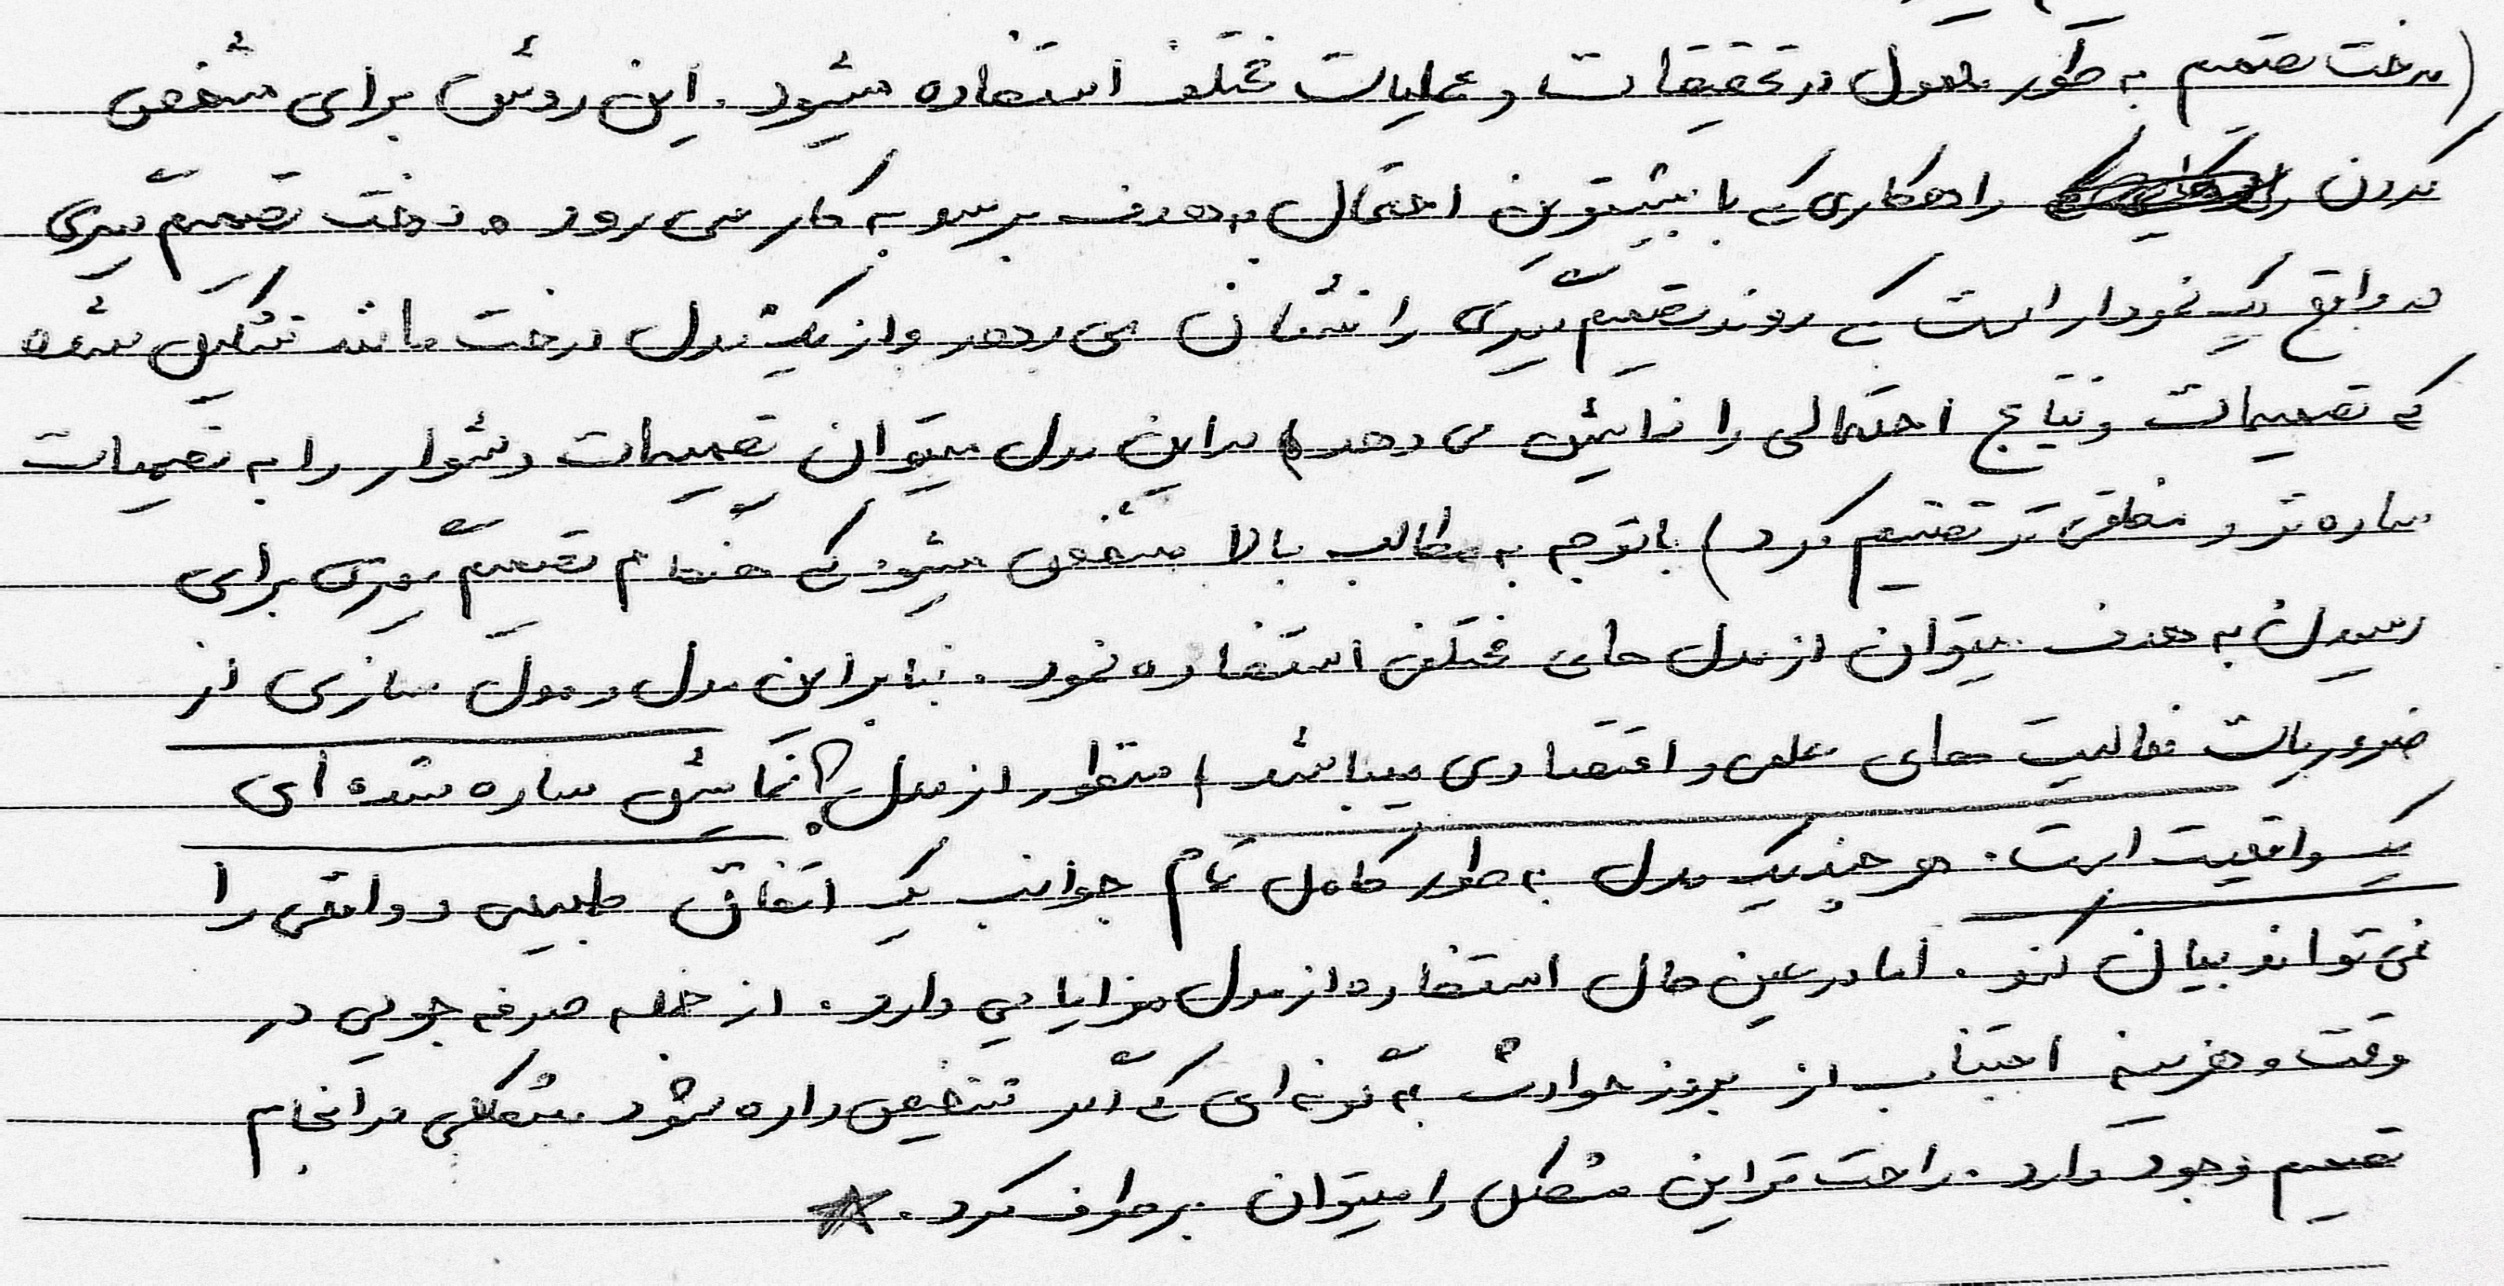 (درخت تصمیم به طور معمول در تحقیقات و عملیات مختلف استفاده میشود. این روش برای مشخص
کردن راهکاری که با بیشترین احتمال به هدف برسد به کار می رود. درخت تصمیم گیری
در واقع یک نمودار است که روند تصمیم گیری را نشان می دهد و از یک مدل درخت مانند تشکیل شده
که تصمیمات و نتایج احتمالی را نمایش می دهد) در این مدل میتوان تصمیمات دشوار را به تصمیمات
ساده تر و منطقی تر تقسیم کرد) با توجه به مطالب بالا مشخص میشود که هنگام تصمیم گیری برای
رسیدن به هدف میتوان از مدل های مختلف استفاده نمود. بنابراین مدل و مدل سازی از
ضروریات فعالیت های علمی و اقتصادی میباشد) منظور از مدل؟ نمایش ساده شده ای
یک واقعیت است. هر چند یک مدل به طور کامل تمام جوانب یک اتفاق طبیعی و واقعی را
نمی تواند بیان کند. اما در عین حال استفاده از مدل مزایایی دارد. از جمله صرفه جویی در
وقت و هزینه اجتناب از بروز حوادث به گونه ای که اگر تشخیص داده شود مشکلی در انجام
تصمیم وجود دارد. راحت تر این مشکل را میتوان برطرف کرد.